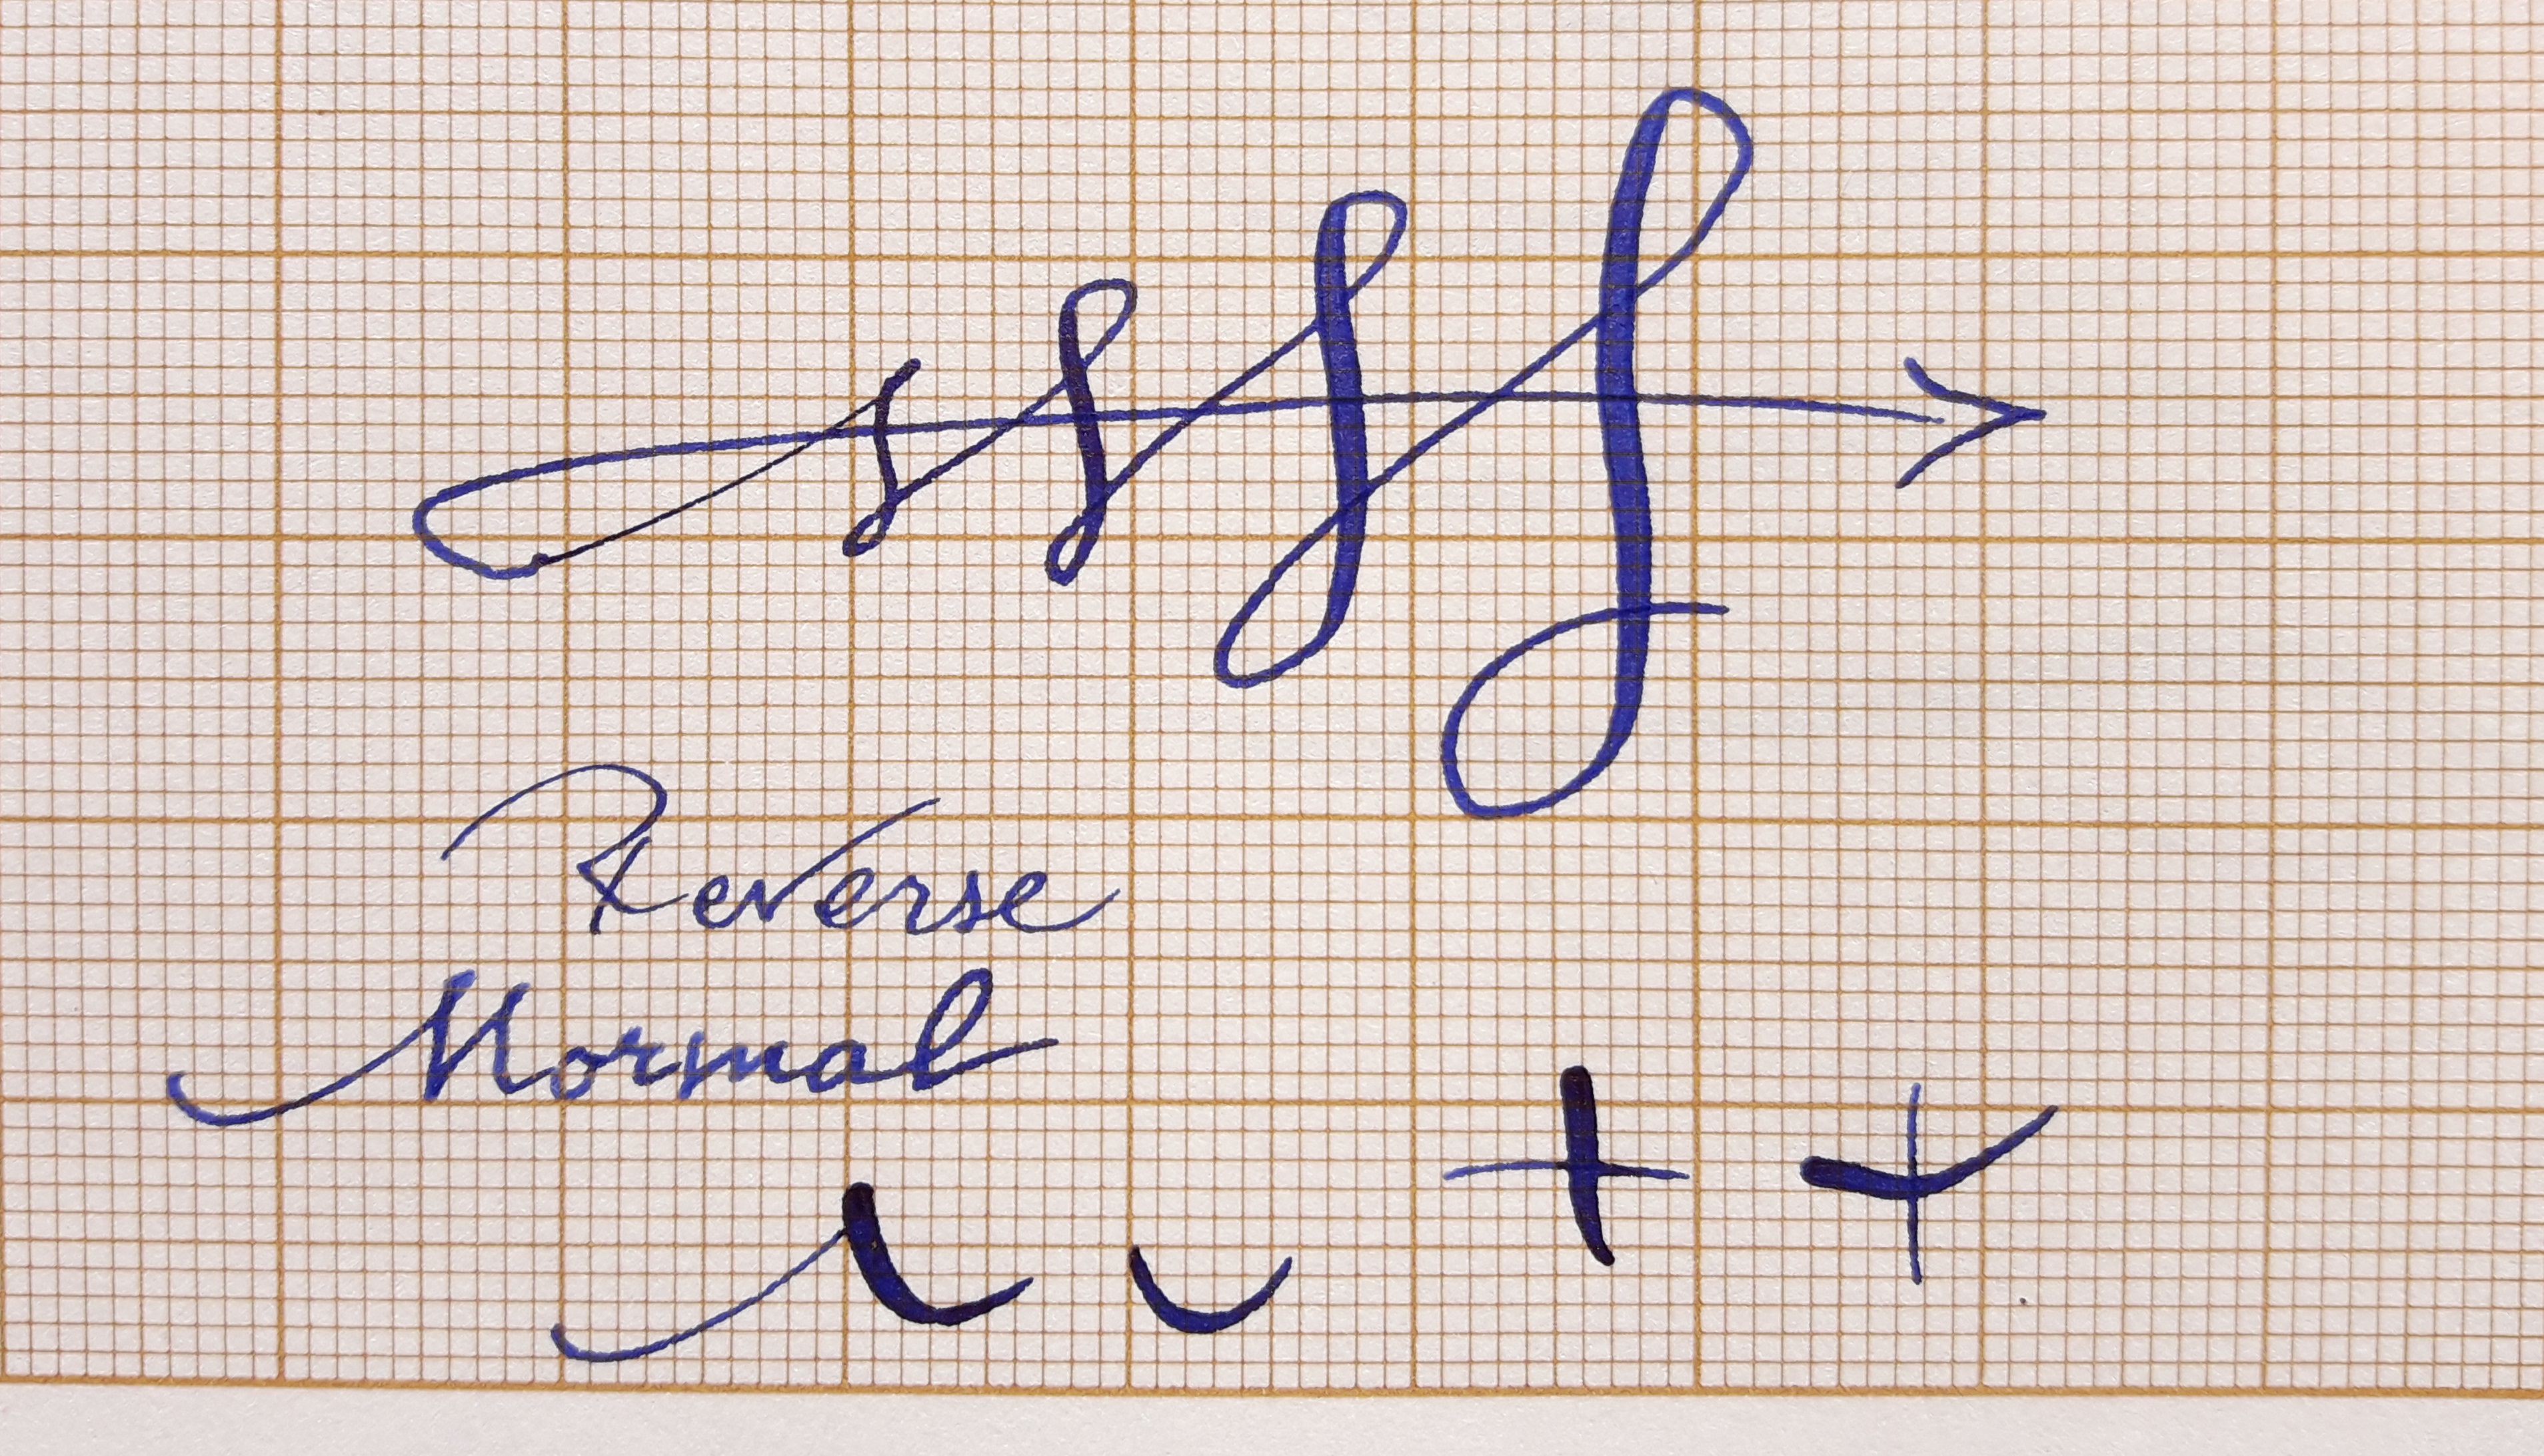 Reverse
Normal